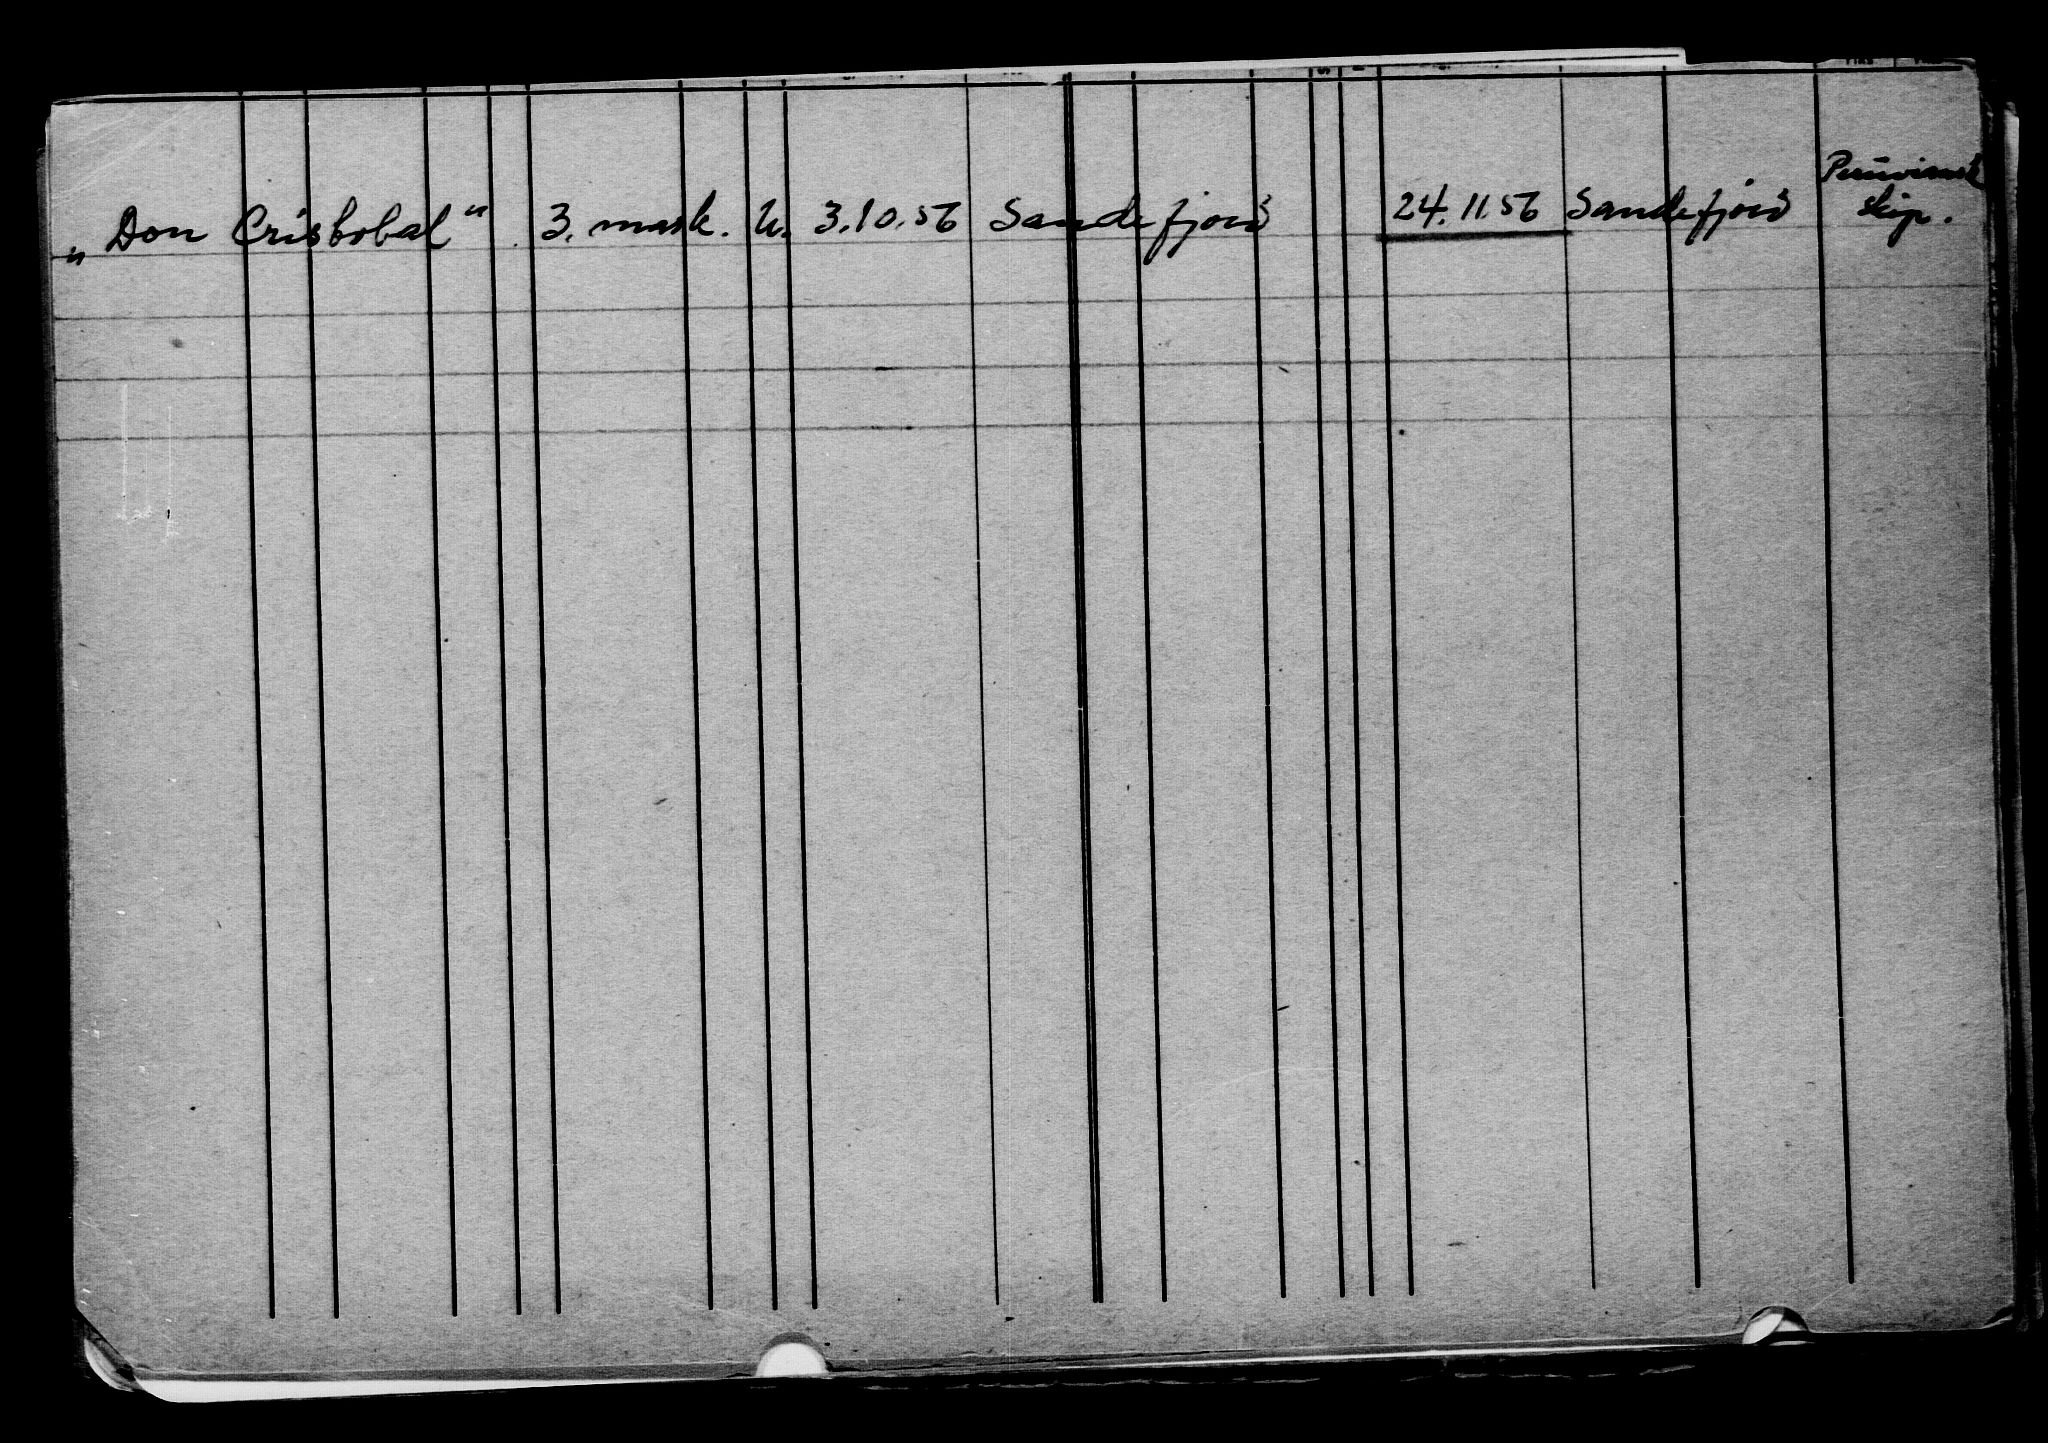 „Don Cristobal“ 3. mask. U. 3.10.56 Sandefjord 24.11.56 Sandefjord Peruviansk
skip.